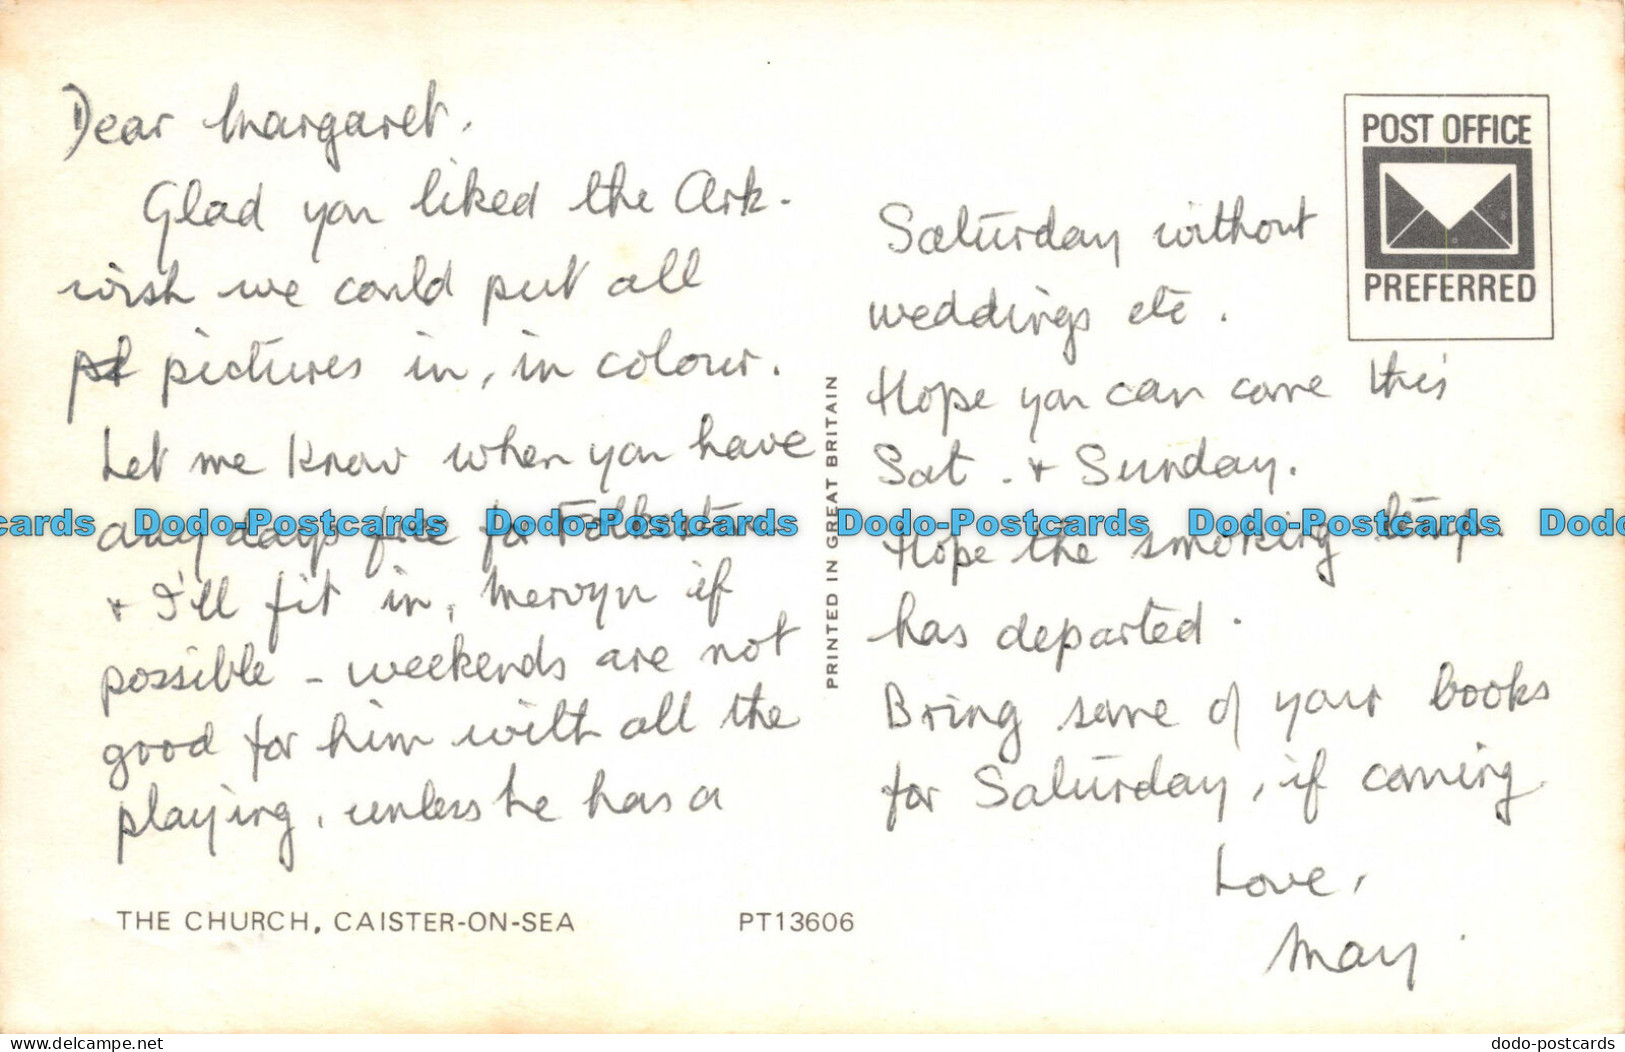 Dear Margaret.
Glad you liked the Ark -
wish we could put all
pictures in, in colour.
Let me know when you have
any days free for Folkestone
& I'll fit in, Mervyn if
possible - weekends are not
good for him with all the
playing, unless he has a
THE CHURCH, CAISTER-ON-SEA
PT13606
PRINTED IN GREAT BRITAIN
POST OFFICE
PREFERRED
Saturday without
weddings etc.
Hope you can come this
Sat. & Sunday.
Hope the smoking
has departed.
Bring some of your books
for Saturday, if coming.
Love,
May.
cards Dodo-Postcards Dodo-Postcards Dodo-Postcards Dodo-Postcards Dodo
dodo-postcards.delcampe.net
dodo-postcards